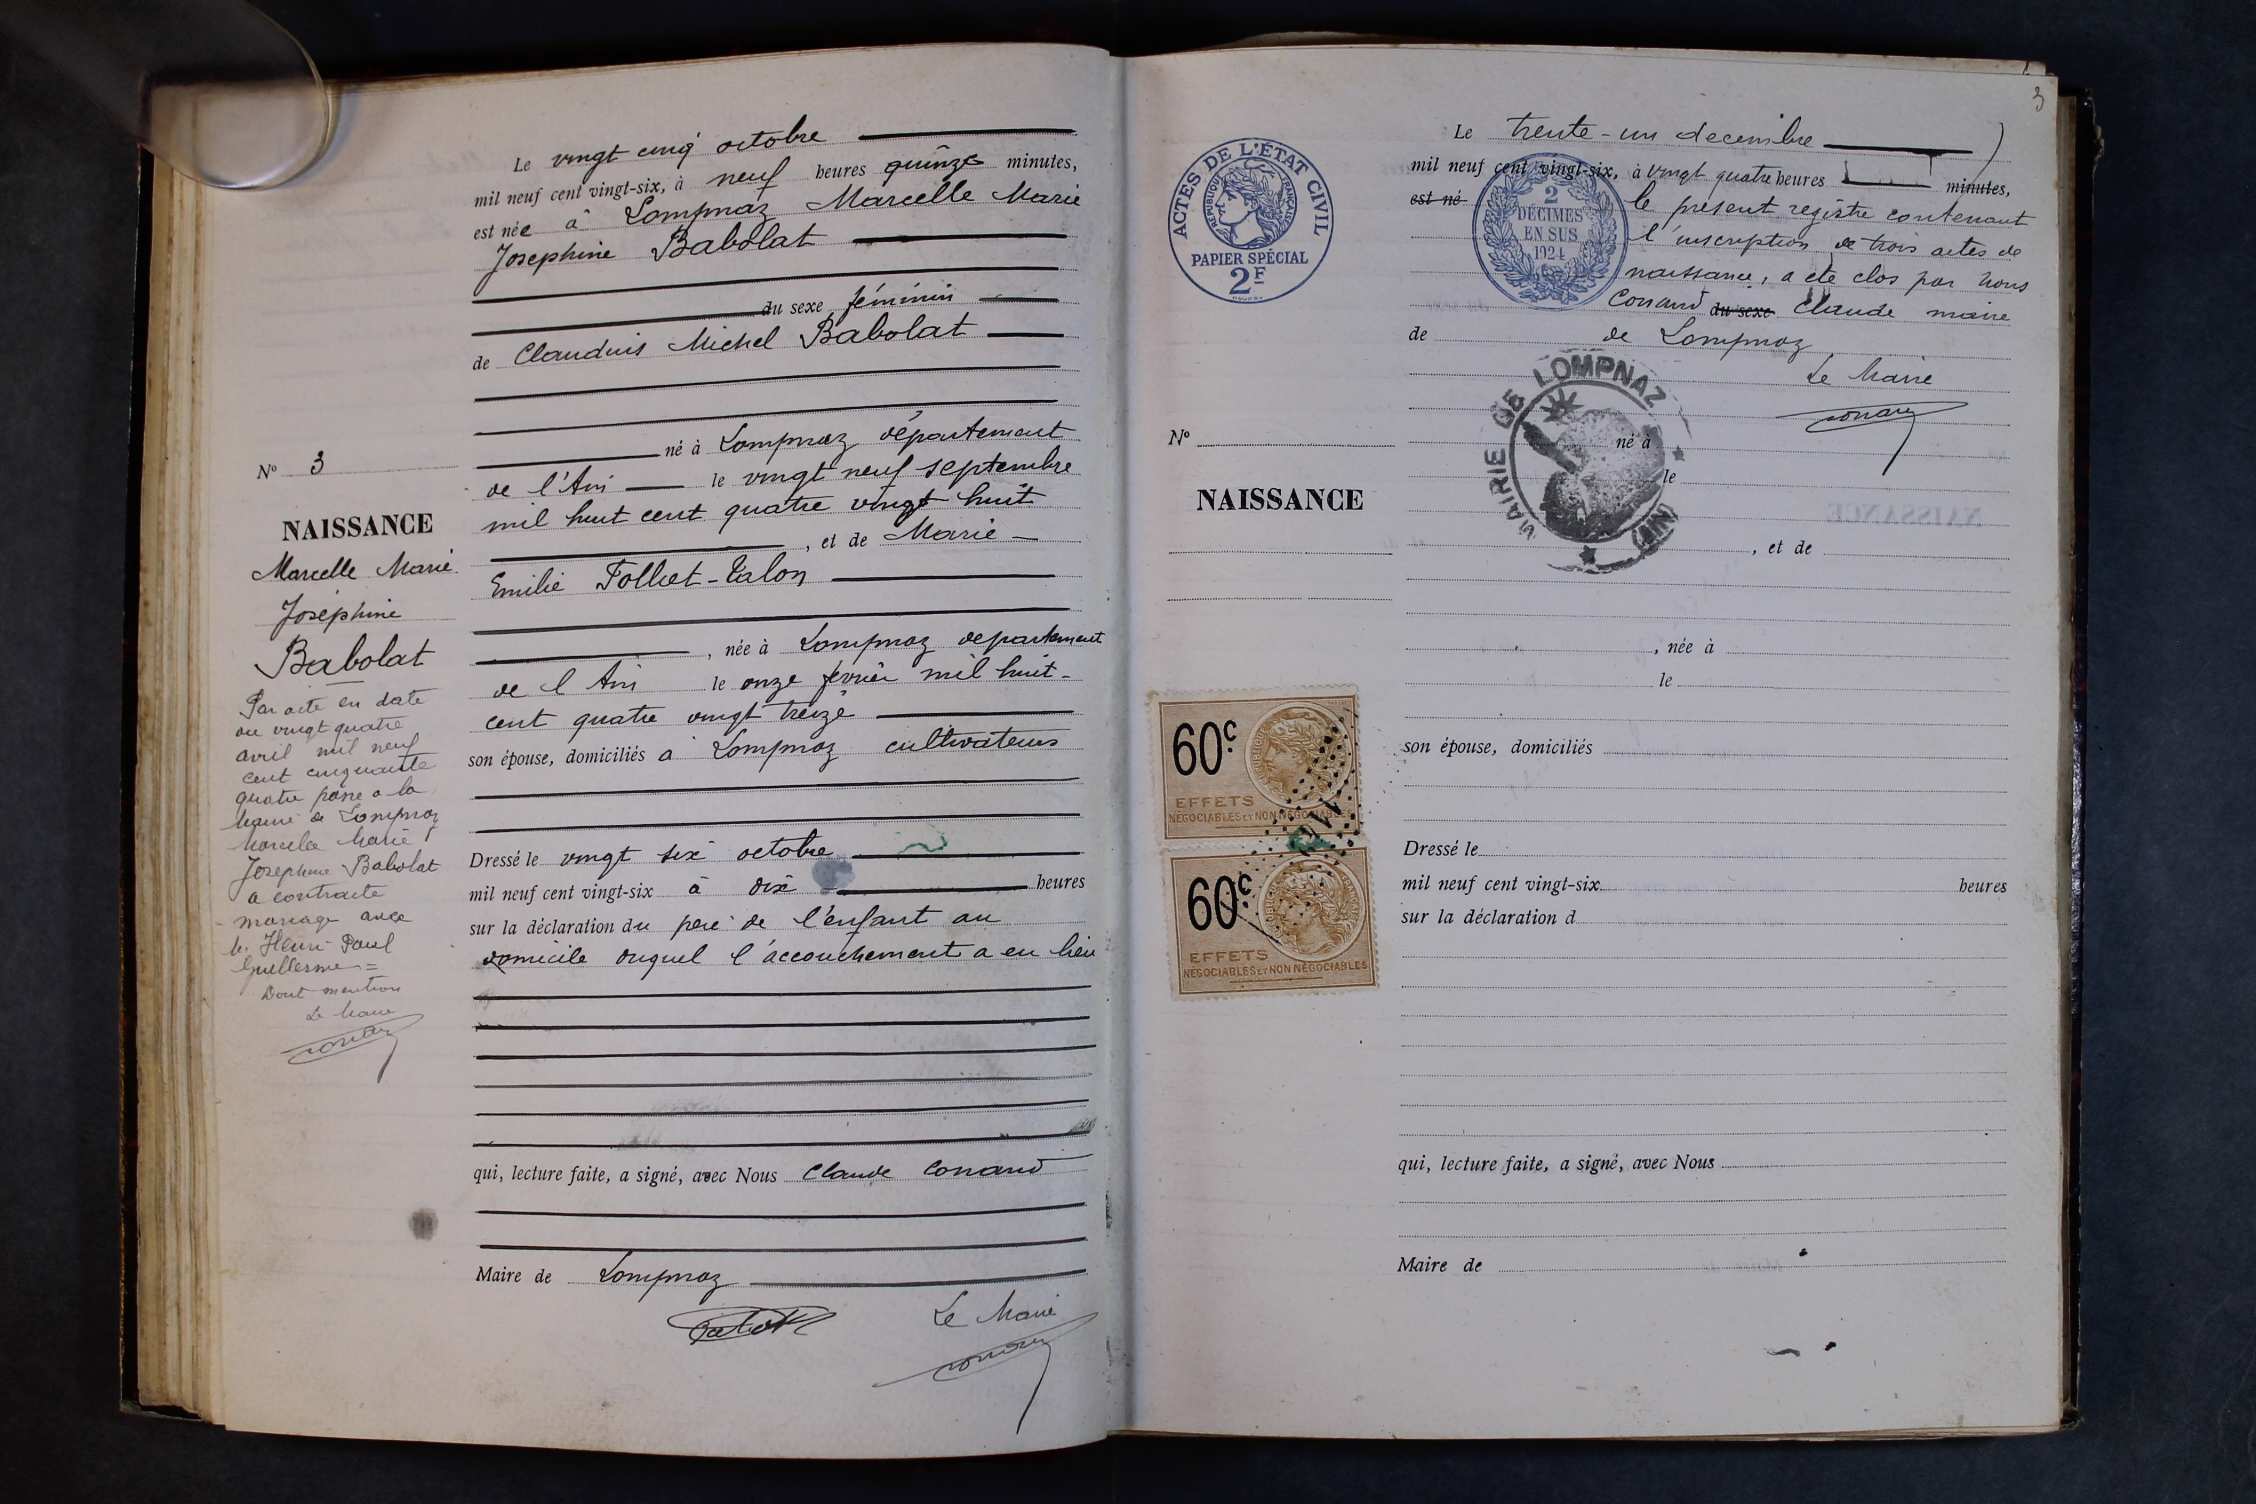 Le vingt cinq octobre
mil neuf cent vingt-six, à neuf heures quinze minutes,
est née à Lompnaz Marcelle Marie
Josephine Babolat
du sexe féminin
de Claudius Michel Babolat
né à Lompnaz département
de l'Ain le vingt neuf septembre
mil huit cent quatre vingt huit
, et de Marie
Emilie Folliet-Talon
, née à Lompnaz departement
de l Ain le onze fevrier mil huit
cent quatre vingt treize
son épouse, domiciliés à Lompnaz cultivateurs
Dressé le vingt six octobre
mil neuf cent vingt-six à dix heures
sur la déclaration du père de l'enfant au
domicile duquel l'accouchement a eu lieu
qui, lecture faite, a signé, avec Nous Claude Conand
Maire de Lompnaz
Le Maire
N° 3
NAISSANCE
Marcelle Marie
Joséphine
Babolat
Par acte en date
du vingt quatre
avril mil neuf
cent cinquante
quatre passé a la
Mairie de Lompnaz
Marcelle Marie
Josephine Babolat
a contracté
mariage avec
Henri Paul
Guellerme
Dont mention
Le Maire
3
ACTES DE L'ÉTAT CIVIL
RÉPUBLIQUE FRANÇAISE
PAPIER SPÉCIAL
2F
Le trente-un decembre
mil neuf cent vingt-six, à vingt quatre heures minutes,
est né le présent registre contenant
l'inscription de trois actes de
naissance, a été clos par nous
Conand du sexe Claude maire
de de Lompnaz
Le Maire
2
DÉCIMES
EN SUS
1924
MAIRIE DE LOMPNAZ
(AIN)
né à
le
N°
NAISSANCE
, et de
, née à
le
son épouse, domiciliés
Dressé le
mil neuf cent vingt-six heures
sur la déclaration d
qui, lecture faite, a signé, avec Nous
Maire de
60c
EFFETS
NÉGOCIABLES ET NON NÉGOCIABLES
60c
EFFETS
NÉGOCIABLES ET NON NÉGOCIABLES